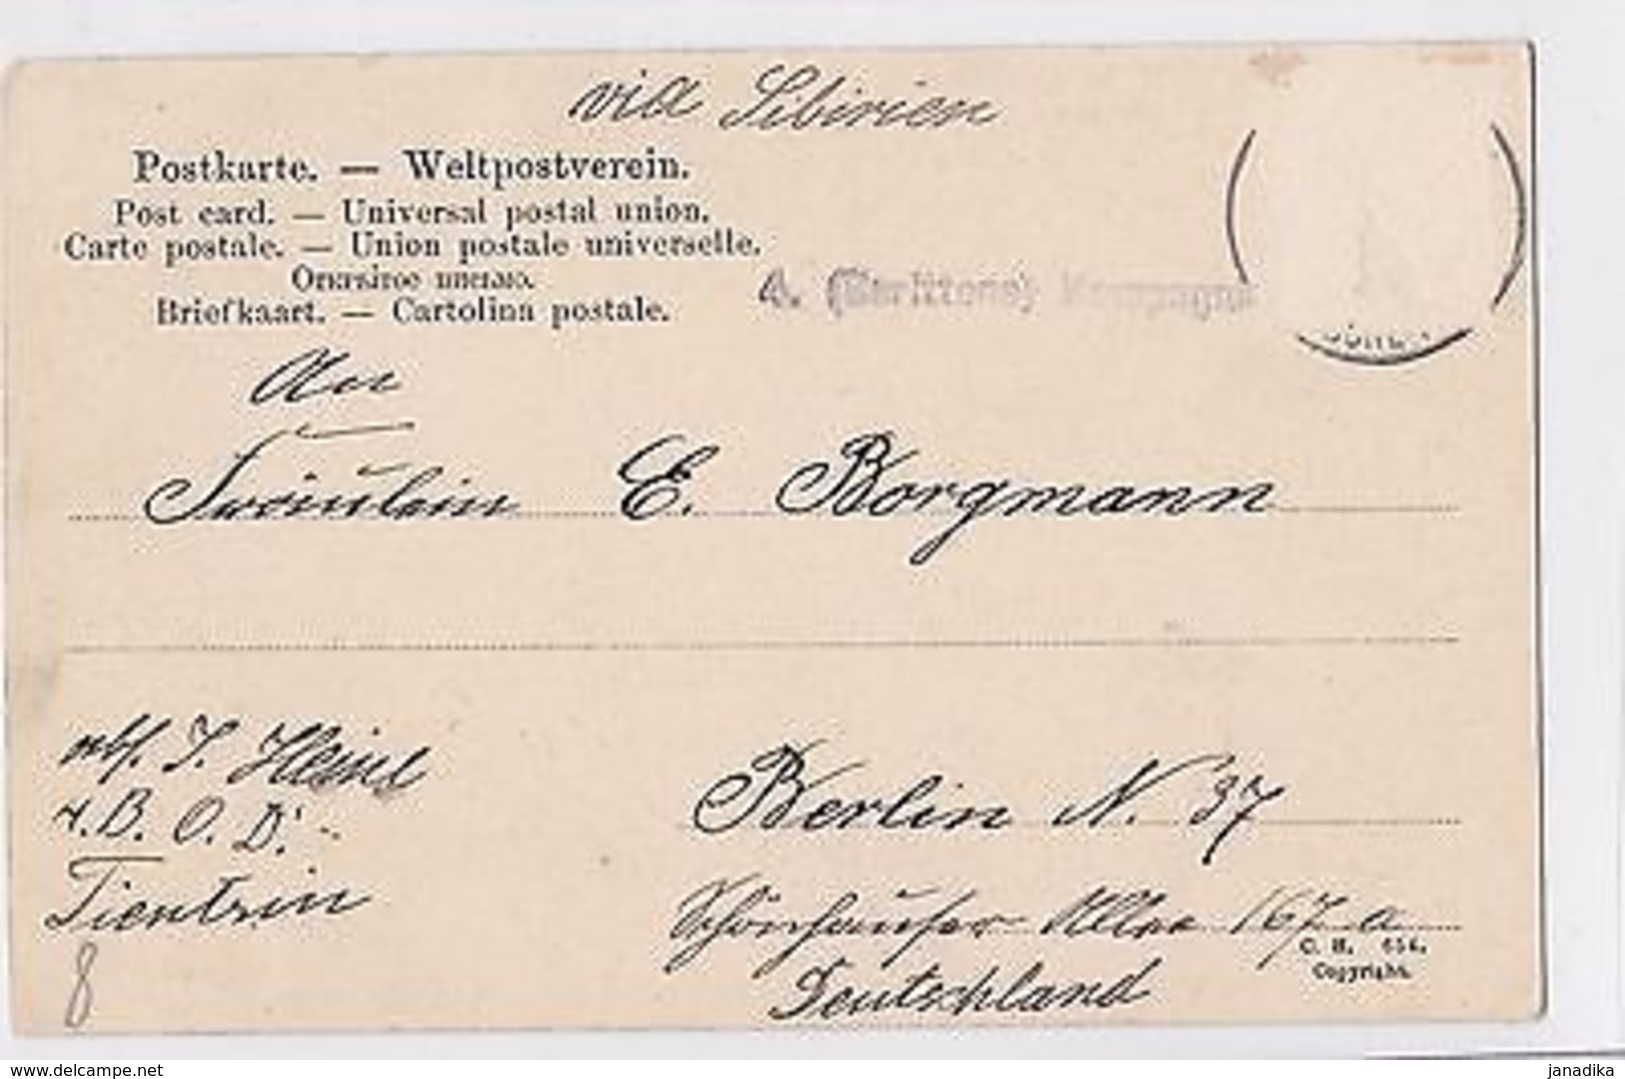 via Sibirien
Postkarte. — Weltpostverein.
Post card. — Universal postal union.
Carte postale. — Union postale universelle.
Briefkaart. — Cartolina postale.
4. (Berittene) Kompagni
An
Fräulein E. Borgmann
Abs. J. Heinl
O. B. O. D.
Tientsin
Berlin N. 37
Schönhauser Allee 167 a
Deutschland
Copyright.
8
www.delcampe.net
janadika